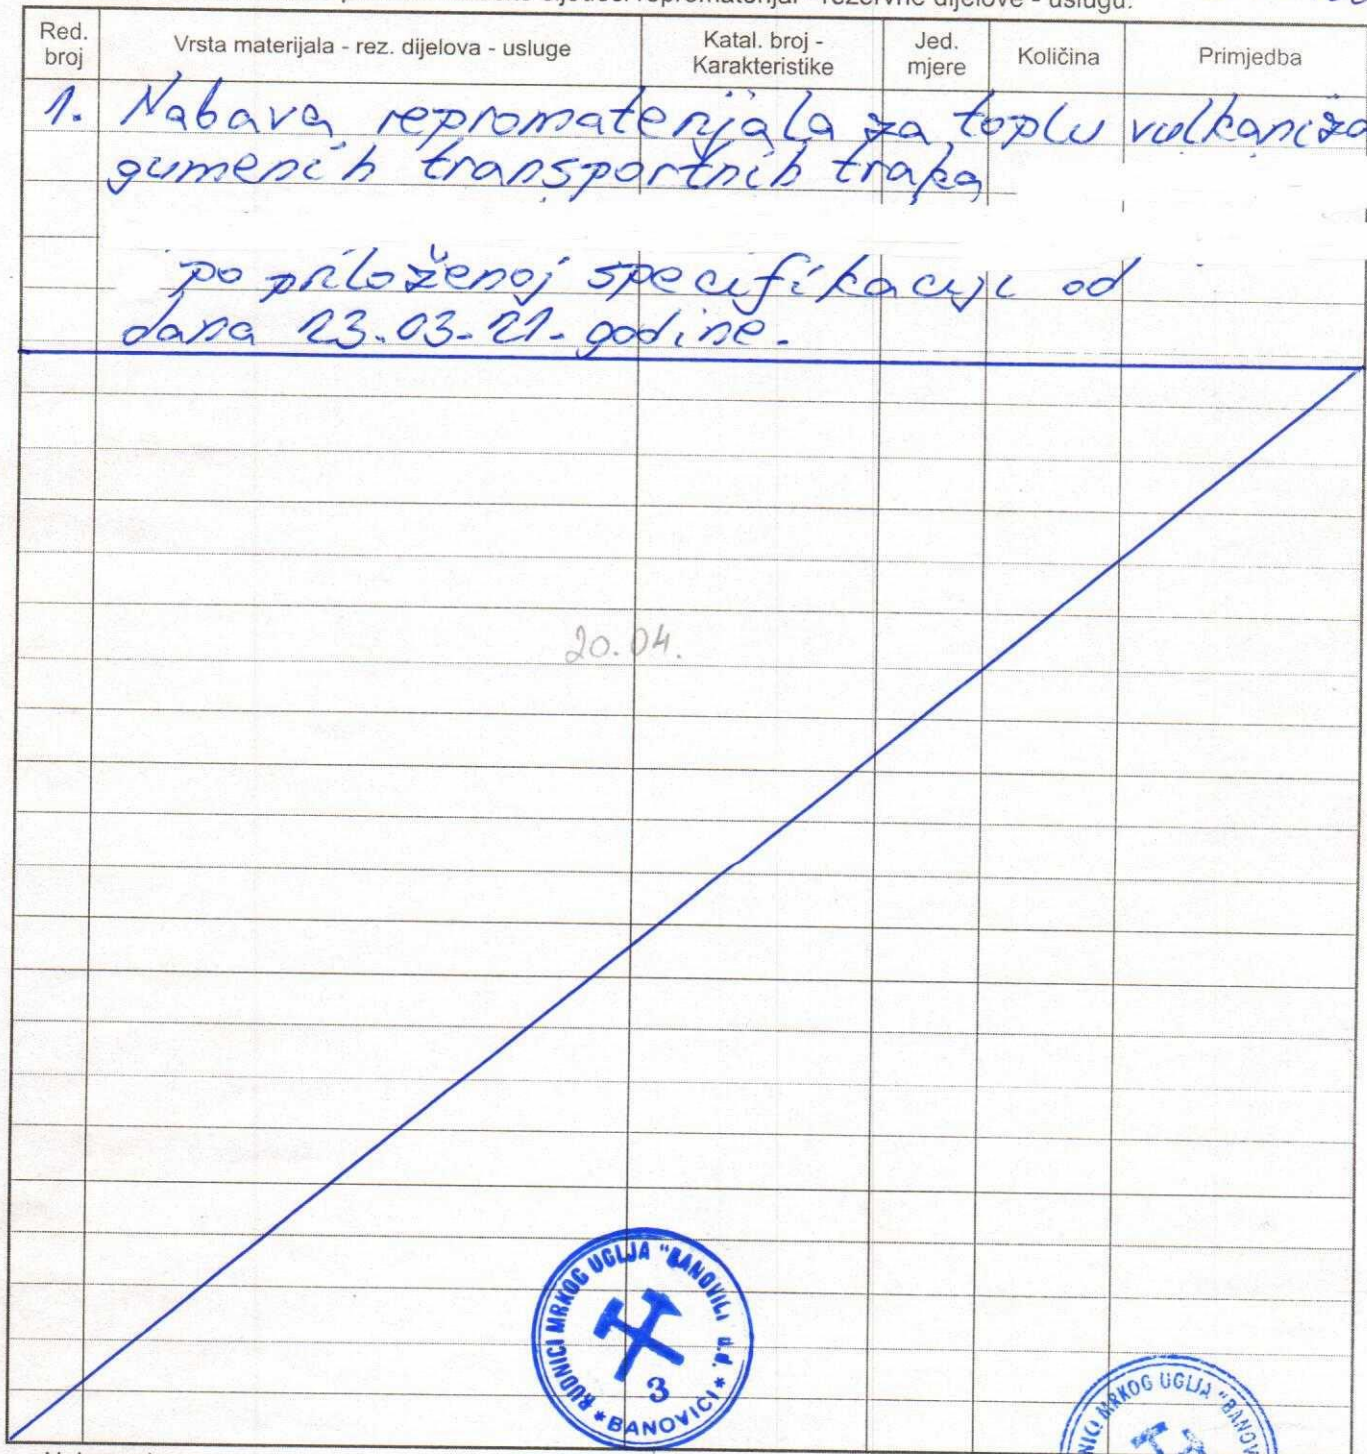 repromaterijal - rezervne dijelove - uslugu:
Red. broj
Vrsta materijala - rez. dijelova - usluge
Katal. broj - Karakteristike
Jed. mjere
Količina
Primjedba
1. Nabava repromaterijala za toplu vulkaniza
gumenih transportnih traka
po priloženoj specifikaciji od
dana 23.03.21. godine.
20.04.
RUDNICI MRKOG UGLJA "BANOVIĆI" d.d.
3
* BANOVIĆI *
MRKOG UGLJA